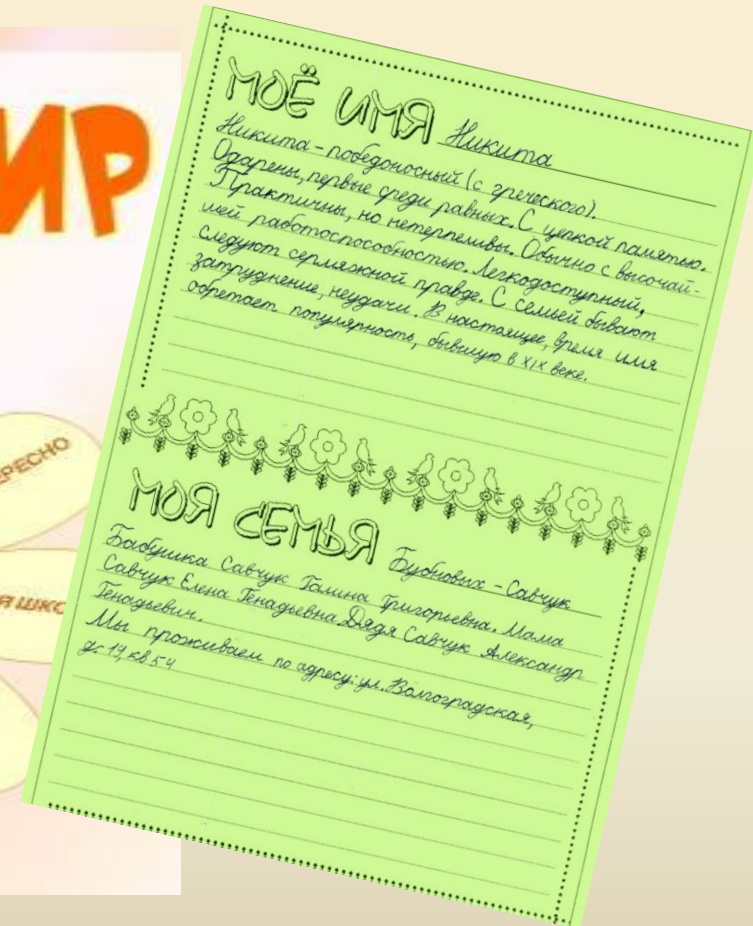 ИР
ЕРЕСНО
Я ШКО
МОЁ ИМЯ Никита
Никита – победоносный (с греческого).
Одарены, первые среди равных. С цепкой памятью.
Практичны, но нетерпеливы. Обычно с высочай-
шей работоспособностью. Легкодоступный,
следуют сермяжной правде. С семьей бывают
затруднение, неудачи. В настоящее, время имя
обретает популярность, бывшую в XIX веке.
МОЯ СЕМЬЯ Бубнович – Савчук
Бабушка Савчук Галина Григорьевна. Мама
Савчук Елена Генадьевна. Дядя Савчук Александр
Генадьевич.
Мы проживаем по адресу: ул. Волгоградская,
д. 19, кв 54